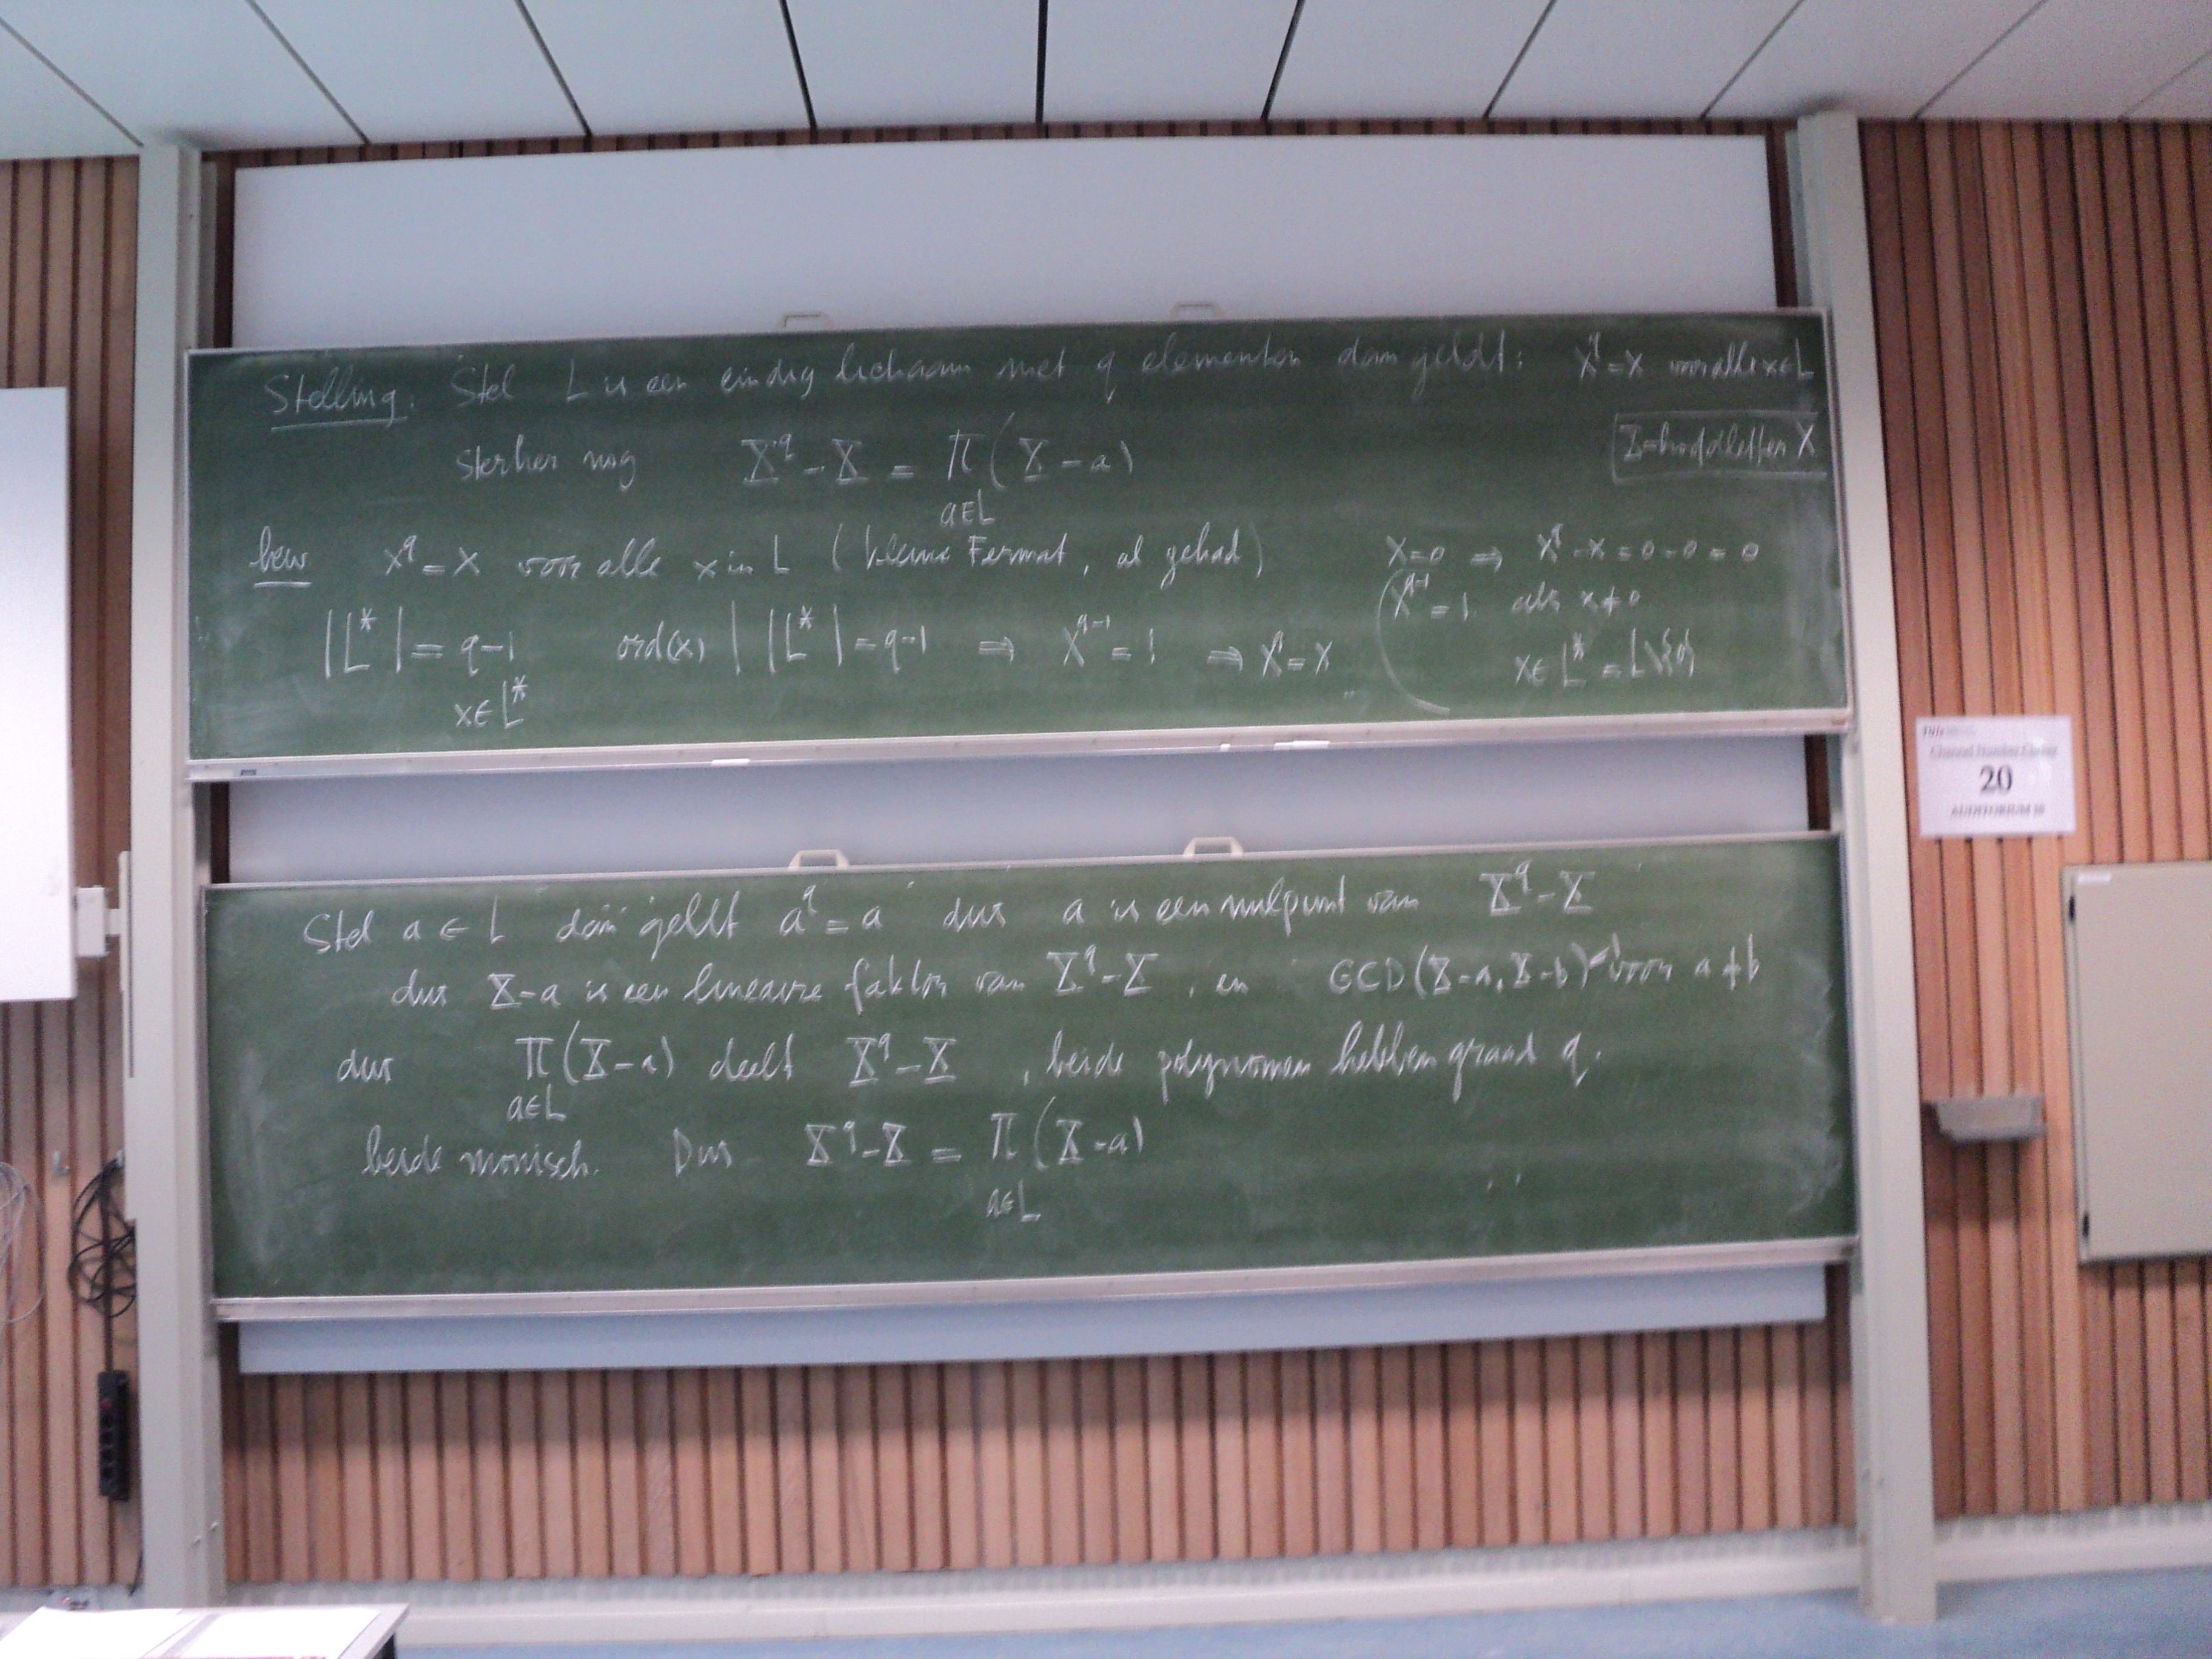 Stelling: Stel L is een eindig lichaam met q elementen dan geldt: x^q = x voor alle x∈L
sterker nog X^q - X = π (X - a)
a∈L
X=hoofdletter X
bew x^q = x voor alle x in L (kleine Fermat, al gehad)
x=0 ⇒ x^q - x = 0 - 0 = 0
x^{q-1} = 1 als x≠0
|L*| = q-1 ord(x) | |L*| = q-1 ⇒ x^{q-1} = 1 ⇒ x^q = x
x∈L* = L\{0}
x∈L*
Stel a ∈ L dan geldt a^q = a dus a is een nulpunt van X^q - X
dus X-a is een lineaire faktor van X^q - X, en GCD(X-a, X-b)=1 voor a≠b
dus π(X-a) deelt X^q - X, beide polynomen hebben graad q.
a∈L
beide monisch. Dus X^q - X = π (X-a)
a∈L
20
AUDITORIUM